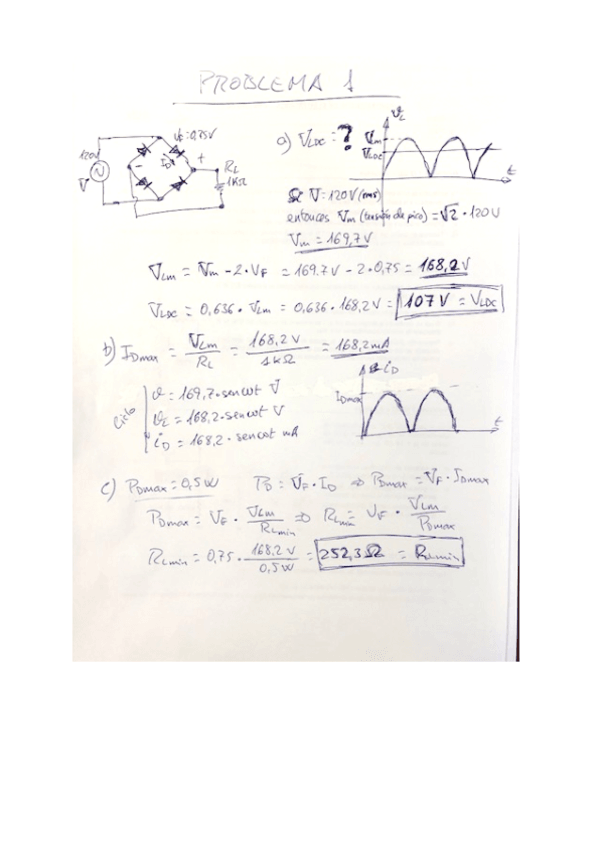 PROBLEMA 1
VF=0,75V
120V
V
ID
- +
RL
1KΩ
a) VLDC = ?
VL
VLm
VLDC
t
V=120V (rms)
entonces Vm (tensión de pico) = √2 · 120V
Vm = 169,7V
VLm = Vm - 2·VF = 169.7V - 2·0,75 = 168,2V
VLDC = 0,636 · VLm = 0,636 · 168,2V = 107V = VLDC
b) IDmax = VLm / RL = 168,2V / 1KΩ = 168,2mA
Ciclo
v = 169,7·senωt V
vL = 168,2·senωt V
iD = 168,2 · senωt mA
iD
IDmax
t
c) PDmax = 0,5W PD = VF · ID ⇒ PDmax = VF · IDmax
PDmax = VF · VLm / RLmin ⇒ RLmin = VF · VLm / PDmax
RLmin = 0,75 · 168,2V / 0,5W = 252,3Ω = RLmin